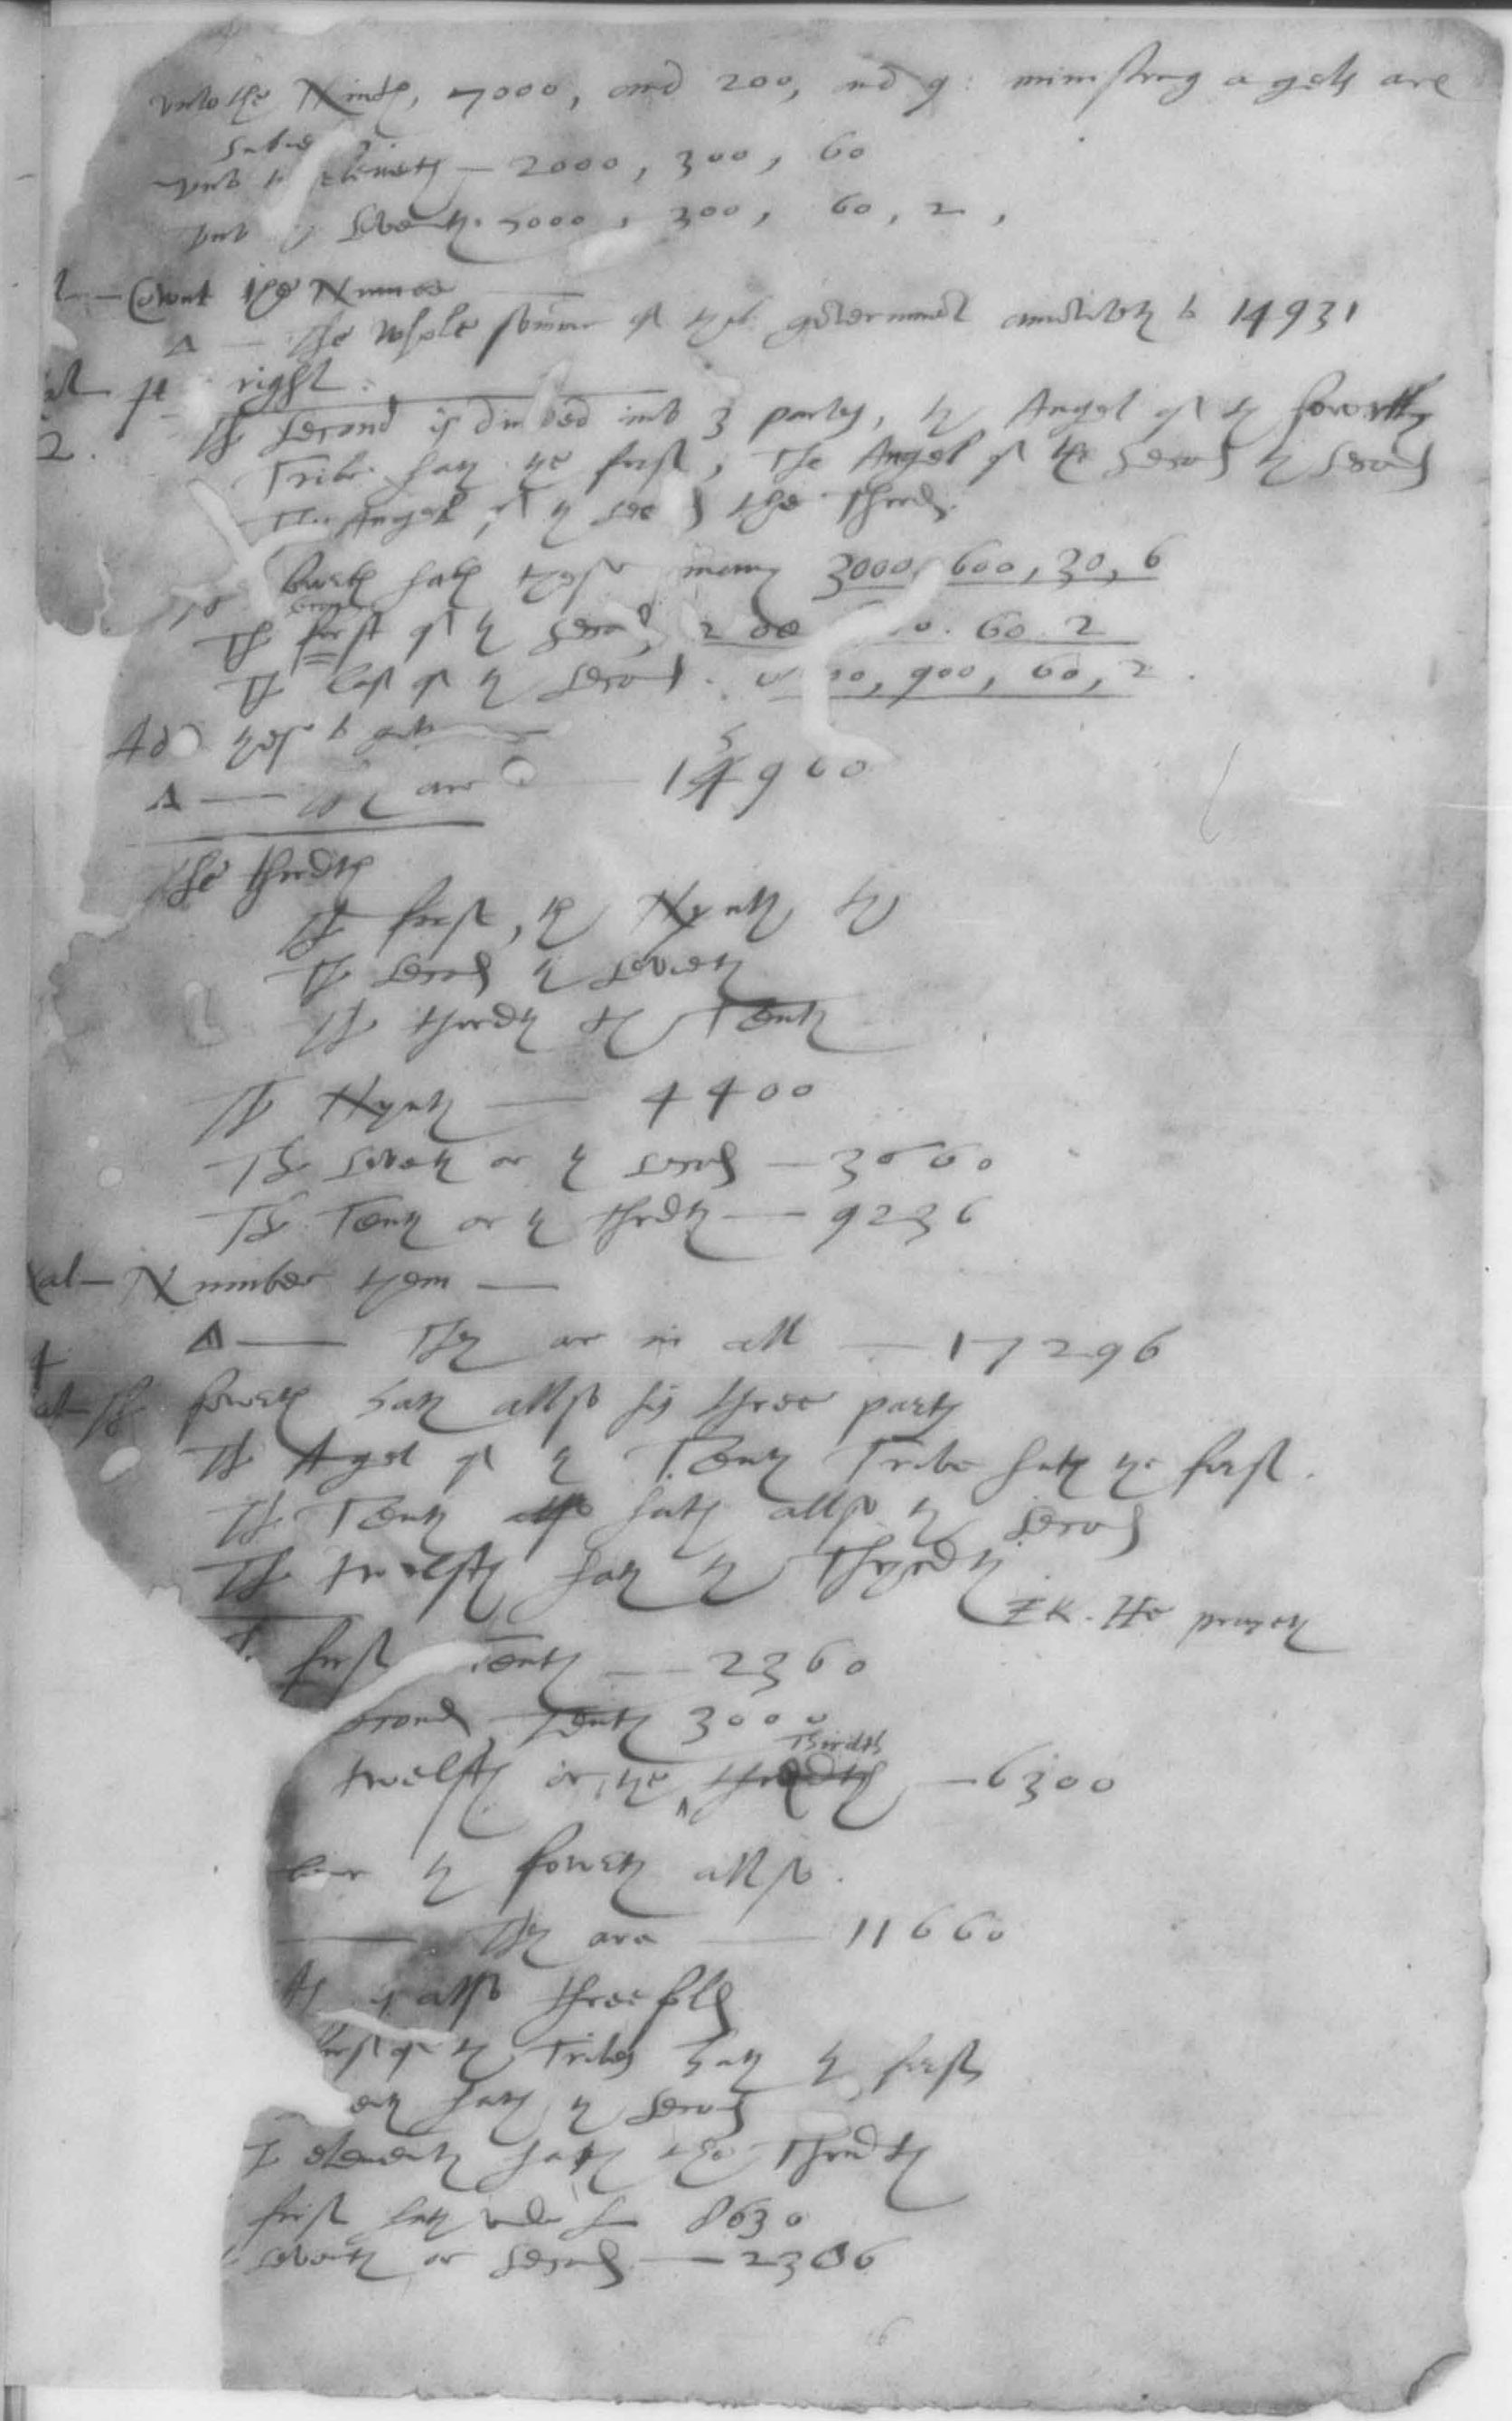 vnto the Ninth, 7000, and 200, and 9: ministring agels are
eleuenth — 2000, 300, 60
Seventh. 5000, 300, 60, 2,
l — Cownt the Numes
Δ — The whole somme of this gouernment amounteth to 14931
right.
2. The second is diuided into 3 partes, the Angel of the fowrth
Tribe hath the first, The Angel of the Second the Second
The Angel of the the Third.
hath these many 3000 600, 30, 6
The first of the Second, 2 60. 2
The last of the Second. 900, 60, 2.
Ad these to gether
Δ — They are — 15960
The thirdth
The first, the Nynth, the
The Second the Seuenth
The thirdth the Tenth
The Nynth — 4400
The Seuenth or the Second — 3660
The Tenth or the thirdth — 9236
al — Number them —
Δ — They are in all — 17296
4
al — The fowrth hath allso his three partes
The Agel of the Tenth Tribe hath the first.
The Tenth hath allso the Second
The twelfth hath the Thyrdth
EK. He prayeth
first Tenth — 2360
second Tenth 3000
Thirdth
twelfth or the thirdth — 6300
the fowrth allso.
— They are — 11660
is allso threefold
first of the Tribes hath the first
hath the Second
eleuenth hath the Thirdth
first hath vnder him 8630
seuenth or Second — 2306